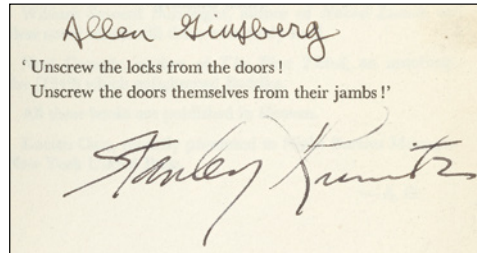 Allen Ginsberg
‘Unscrew the locks from the doors!
Unscrew the doors themselves from their jambs!’
Stanley Kunitz